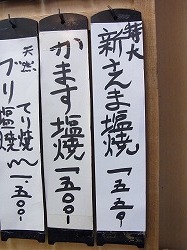 特大
新さんま塩焼
一、五五〇
かます塩焼
一、五〇〇
天然
ブリ塩焼
てり焼
一、五〇〇